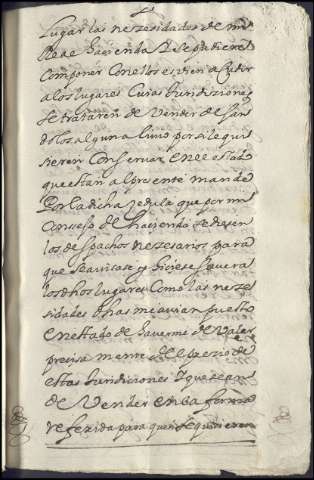 lugar las nezesidades de mi
Real hacienda Y se pudieren
componer con ellos es bien acudir
a los lugares cuias Jurisdiziones
se trataren de Vender dejan
doles algun alivio por si le quis
sieren conservar en el estado
que estan al presente mande
Por la dicha zedula que por mi
consejo de hacienda se diesen
los despachos nezesarios para
que se avisase y hiciese saver a
los dhos lugares como las neze
sidades dhas me avian puesto
en estado de haverme de valer
precisamente de el prezio de
estas Jurisdiciones Y que se an
de Vender en la forma
referida para que si quisieren